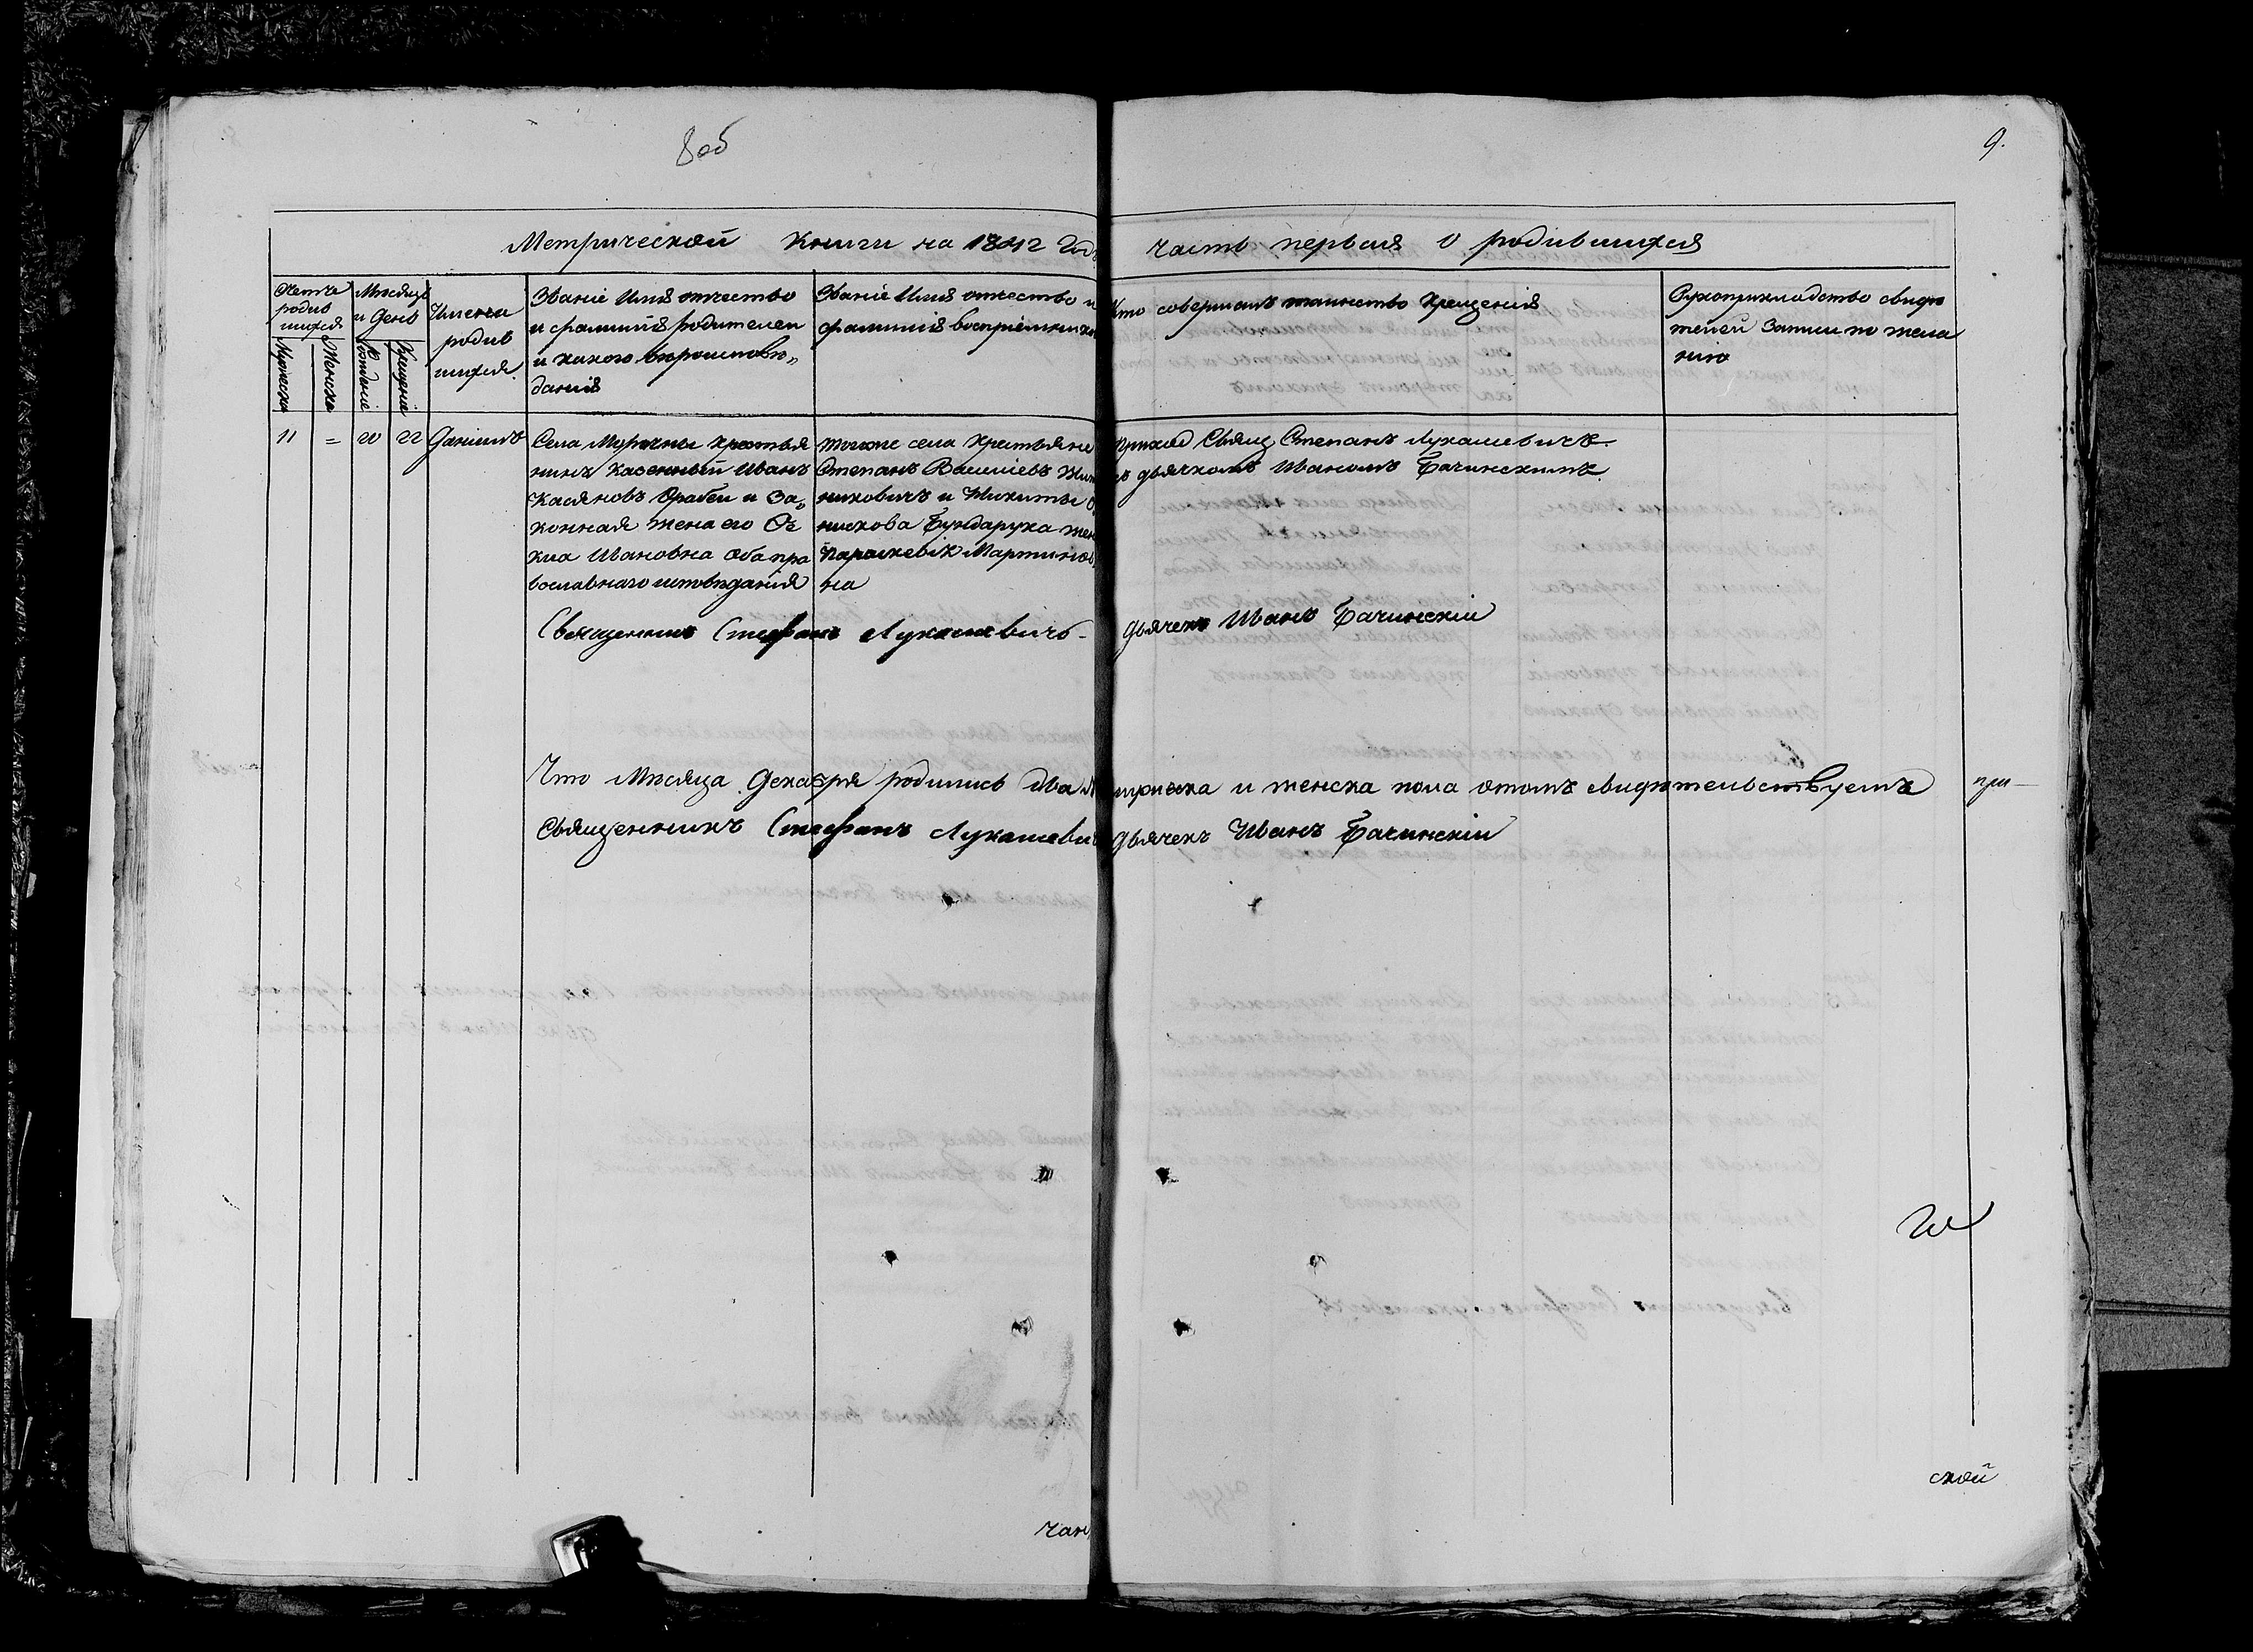 8об
9.
Метрической Книги на 1842 Годъ часть первая о родившихся
Счетъ родив шихся
Мужеска
Женска
Мѣсяцъ и День
Рожденіе
Крещеніе
Имена родив шихся
Званіе Имя отчество
и фамилія родителей
и какого вѣроисповѣ„
данія
Званіе Имя отчество и
фамилія воспріемников
Кто совершалъ таинство крещенія
Рукоприкладство свидѣ
телей записи по жела
нію
11 = 20 22 Даніилъ
Села Морочны крестья
нинъ казенный Иванъ
Касяновъ и За„
конная жена его
Ивановна оба пра
вославнаго исповѣданія
тогоже села крестьяне
Степанъ Василіевъ
никовичъ и Никиты
Бундарука жен
Параскевія Мартинов
на
приход Свящ Степанъ Лукашевичъ
съ дьячкомъ Иваномъ Бачинскимъ.
Священникъ Стефанъ Лукашевичъ - Дьячекъ Иванъ Бачинскій
Что Мѣсяца Декабря родились два мужеска и женска пола отомъ свидѣтельствуемъ
при—
Священникъ Стефанъ Лукашевичъ Дьячекъ Иванъ Бачинскій
ской